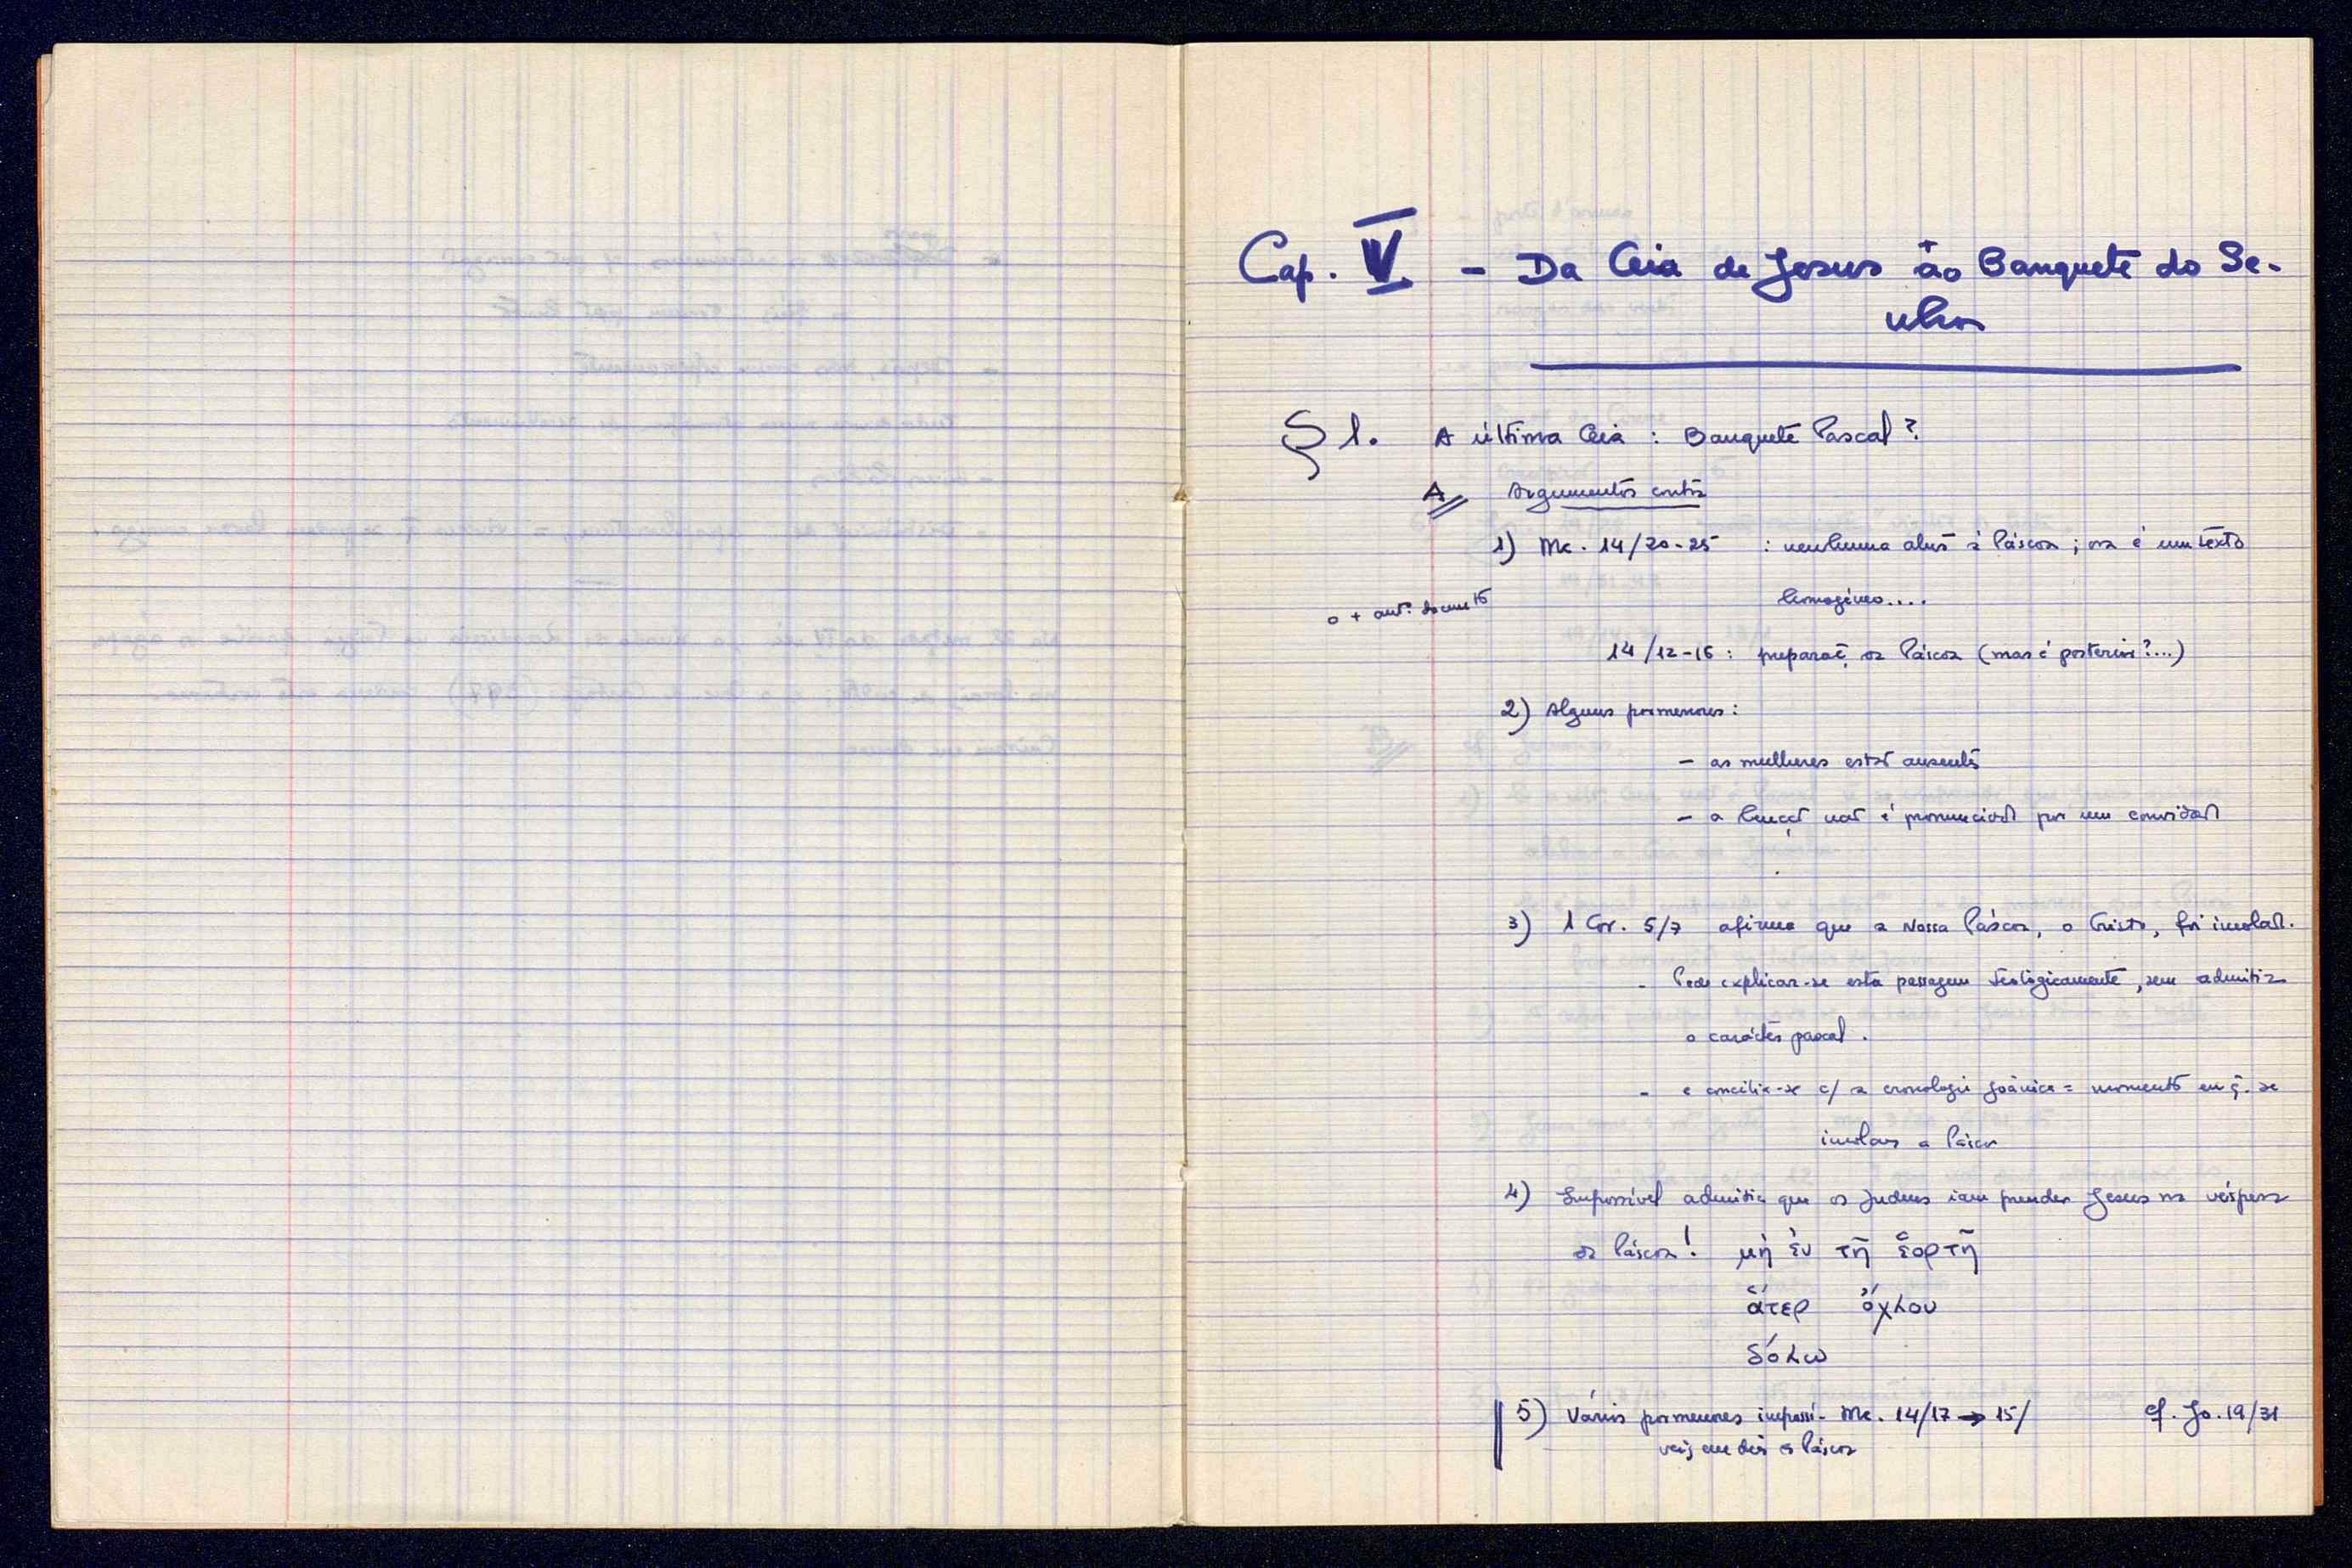 Cap. V. - Da Ceia de Jesus ao Banquete do Se-
nhor
§ 1. A última Ceia : Banquete Pascal ?
A Argumentos contra
1) Mc. 14/20-25 : nenhuma alus à Páscoa ; ora é um texto
homogéneo....
o + ant. document
14/12-16 : preparaç da Páscoa (mas é posterior ?...)
2) Alguns pormenores :
- as mulheres estão ausentes
- a bençã não é pronunciada por um convidad
3) 1 Cor. 5/7 afirma que a Nossa Páscoa, o Cristo, foi imolad.
- Pode explicar-se esta passagem teologicamente, sem admitir
o carácter pascal .
- e concilia-se c/ a cronologia joânica = momento em q. se
imolava a Páscoa
4) Impossível admitir que os Judeus iam prender Jesus na véspera
da Páscoa ! μὴ ἐν τῇ ἑορτῇ
ἄτερ ὄχλου
δόλω
5) Vários pormenores impossí- Mc. 14/17 → 15/ cf. Jo. 19/31
veis em dia da Páscoa